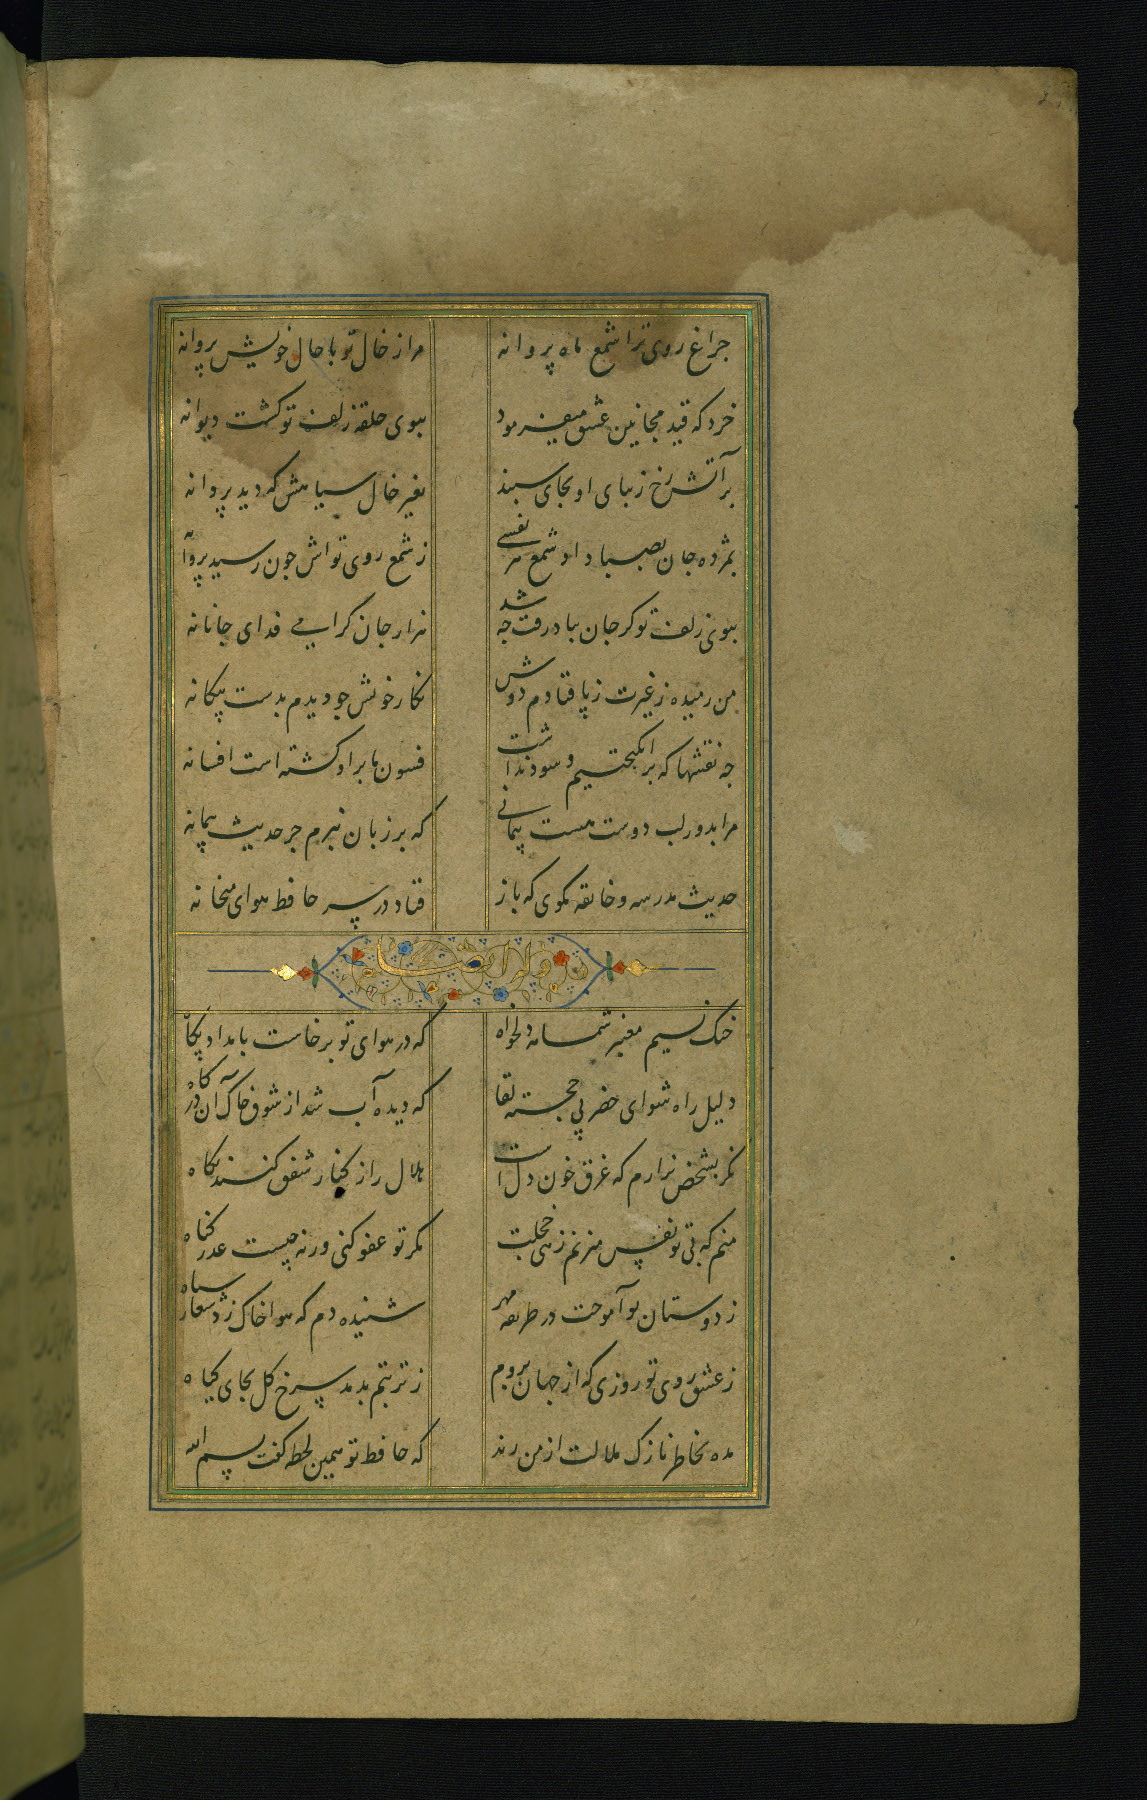 جراغ روی ترا شمع ماه پروانه
مرا ز خال تو با حال خویش پروانه
خرد که قید مجانین عشق میفرمود
ببوی حلقه زلف تو کشت دیوانه
بر آتش رخ زیبای او بجای سپند
بغیر خال سیاهش که دید پروانه
بمژده جان بصبا داد شمع هر نفسی
ز شمع روی تواش جون رسید پروانه
ببوی زلف تو کر جان بباد رفت جه شد
هزار جان کرامی فدای جانانه
من رمیده ز غیرت ز پا فتادم دوش
نکار خویش جو دیدم بدست بیکانه
جه نقشها که برانکیختیم و سود نداشت
فسون ما بر او کشته است افسانه
مرا بدور لب دوست هست پیمانی
که بر زبان نبرم جز حدیث پیمانه
حدیث مدرسه و خانقه مکوی که باز
فتاد در سر حافظ هوای میخانه
وله ایضا
خنک نسیم معنبر شمامه دلخواه
که در هوای تو برخاست بامداد پکاه
دلیل راه شو ای خضر پی خجسته لقا
که دیده آب شد از شوق خاک آن درکاه
بشخص نزارم که غرق خون دل است
هلال را ز کنار شفق کنند نکاه
منم که بی تو نفس میزنم زهی خجلت
مکر تو عفو کنی ورنه چیست عذر کناه
ز دوستان تو آموخت در طریقه مهر
سپیده دم که هوا خاک زد شعار سیاه
ز عشق روی تو روزی که از جهان بروم
ز تربتم بدمد سرخ کل بجای کیاه
مده بخاطر نازک ملالت از من زود
که حافظ تو همین لحظه کفت بسم الله